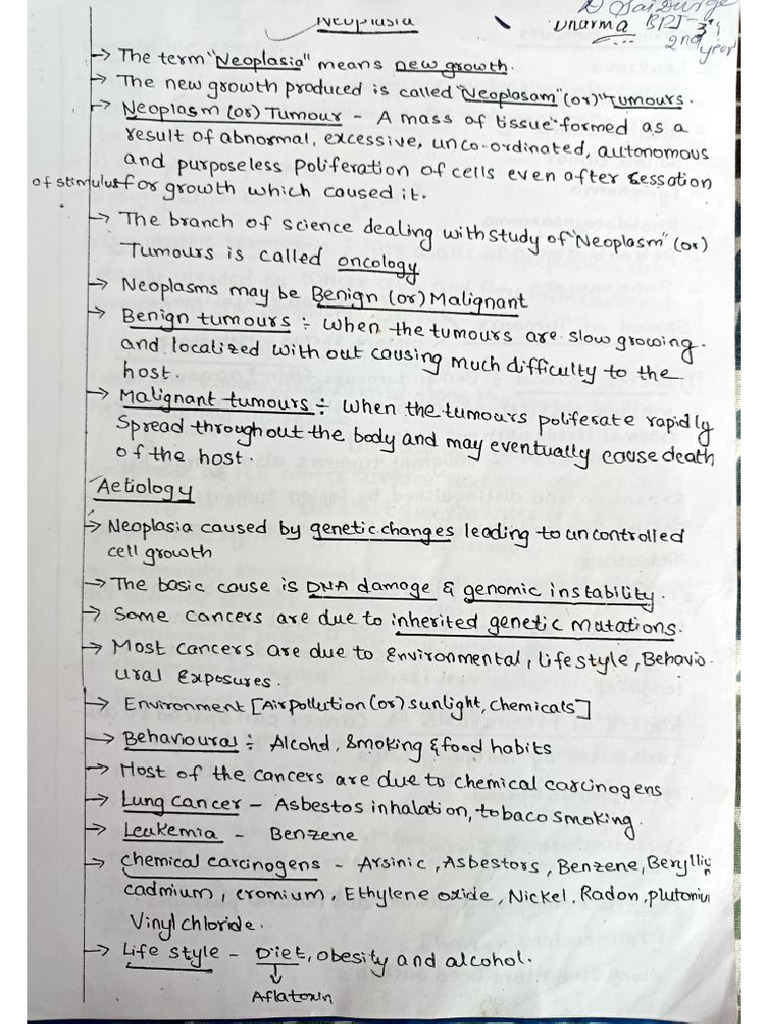 Neoplasia
Dharma BPT 3rd
2nd year
→ The term "Neoplasia" means new growth.
→ The new growth produced is called "Neoplosam" (or) "Tumours.
→ Neoplasm (or) Tumour - A mass of tissue formed as a
result of abnormal, excessive, unco-ordinated, autonomous
and purposeless poliferation of cells even after cessation
of stimulus for growth which caused it.
→ The branch of science dealing with study of "Neoplasm" (or)
Tumours is called oncology
→ Neoplasms may be Benign (or) Malignant
→ Benign tumours ÷ when the tumours are slow growing.
and localized with out causing much difficulty to the
host.
→ Malignant tumours ÷ when the tumours poliferate rapidly
Spread throughout the body and may eventually cause death
of the host.
Aetiology
→ Neoplasia caused by genetic changes leading to uncontrolled
cell growth
→ The basic cause is DNA damage & genomic instability.
→ Some cancers are due to inherited genetic mutations.
→ Most cancers are due to Environmental, lifestyle, Behavio
ural Exposures.
→ Environment [Airpollution (or) sunlight, chemicals]
→ Behavioural ÷ Alcohol, smoking & food habits
→ Most of the cancers are due to chemical carcinogens
→ Lung cancer - Asbestos inhalation, tobaco smoking.
→ Leukemia - Benzene
→ chemical carcinogens - Arsinic, Asbestors, Benzene, Beryllium
cadmium, cromium, Ethylene oxide, Nickel, Radon, plutoniu
Vinyl chloride.
→ Life style - Diet, obesity and alcohol.
↓
Aflatoxin